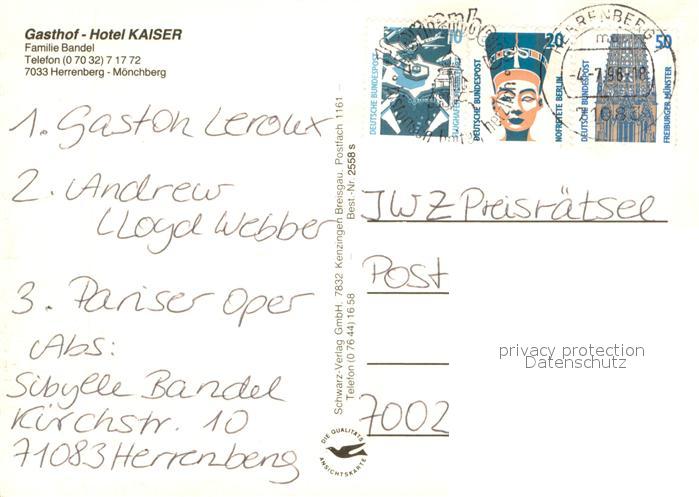 Gasthof - Hotel KAISER
Familie Bandel
Telefon (0 70 32) 7 17 72
7033 Herrenberg - Mönchberg
1. Gaston Leroux
2. Andrew
Lloyd Webber
3. Pariser Oper
Abs:
Sibylle Bandel
Kirchstr. 10
71083 Herrenberg
Schwarz-Verlag GmbH. 7832 Kenzingen Breisgau. Postfach 1161 -
Telefon (0 76 44) 16 58 - Best.-Nr. 2558 s
DIE QUALITÄTS
ANSICHTSKARTE
10
DEUTSCHE BUNDESPOST
20
DEUTSCHE BUNDESPOST
NOFRETETE BERLIN
50
DEUTSCHE BUNDESPOST
FREIBURGER MÜNSTER
HERRENBERG
71083
JWZ Preisrätsel
Post
7002
privacy protection
Datenschutz